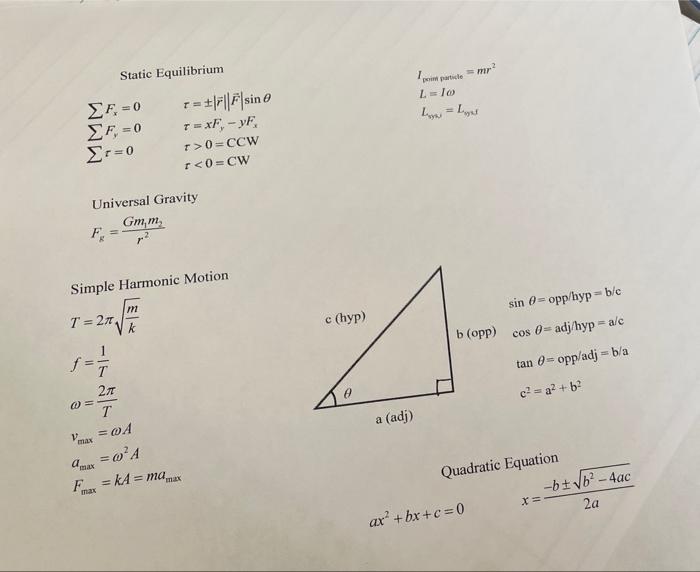 Static Equilibrium
∑Fₓ = 0
∑Fᵧ = 0
∑τ = 0
τ = ±|r⃗||F⃗|sin θ
τ = xFᵧ − yFₓ
τ > 0 = CCW
τ < 0 = CW
I point particle = mr²
L = Iω
L sys,i = L sys,f
Universal Gravity
F_g = Gm₁m₂ / r²
Simple Harmonic Motion
T = 2π√(m/k)
f = 1/T
ω = 2π/T
v_max = ωA
a_max = ω²A
F_max = kA = ma_max
c (hyp)
b (opp)
θ
a (adj)
sin θ = opp/hyp = b/c
cos θ = adj/hyp = a/c
tan θ = opp/adj = b/a
c² = a² + b²
Quadratic Equation
ax² + bx + c = 0
x = (−b ± √(b² − 4ac)) / 2a